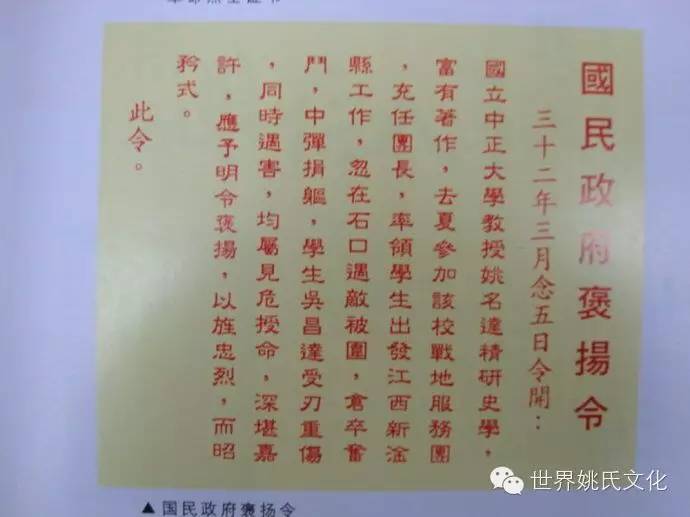 國民政府褒揚令
三十二年三月念五日令開：
國立中正大學教授姚名達精研史學，
富有著作，去夏參加該校戰地服務團
，充任團長，率領學生出發江西新淦
縣工作，忽在石口遇敵被圍，倉卒奮
鬥，中彈捐軀，學生吳昌達受刃重傷
，同時遇害，均屬見危授命，深堪嘉
許，應予明令褒揚，以旌忠烈，而昭
矜式。
此令。
▲国民政府褒扬令
世界姚氏文化